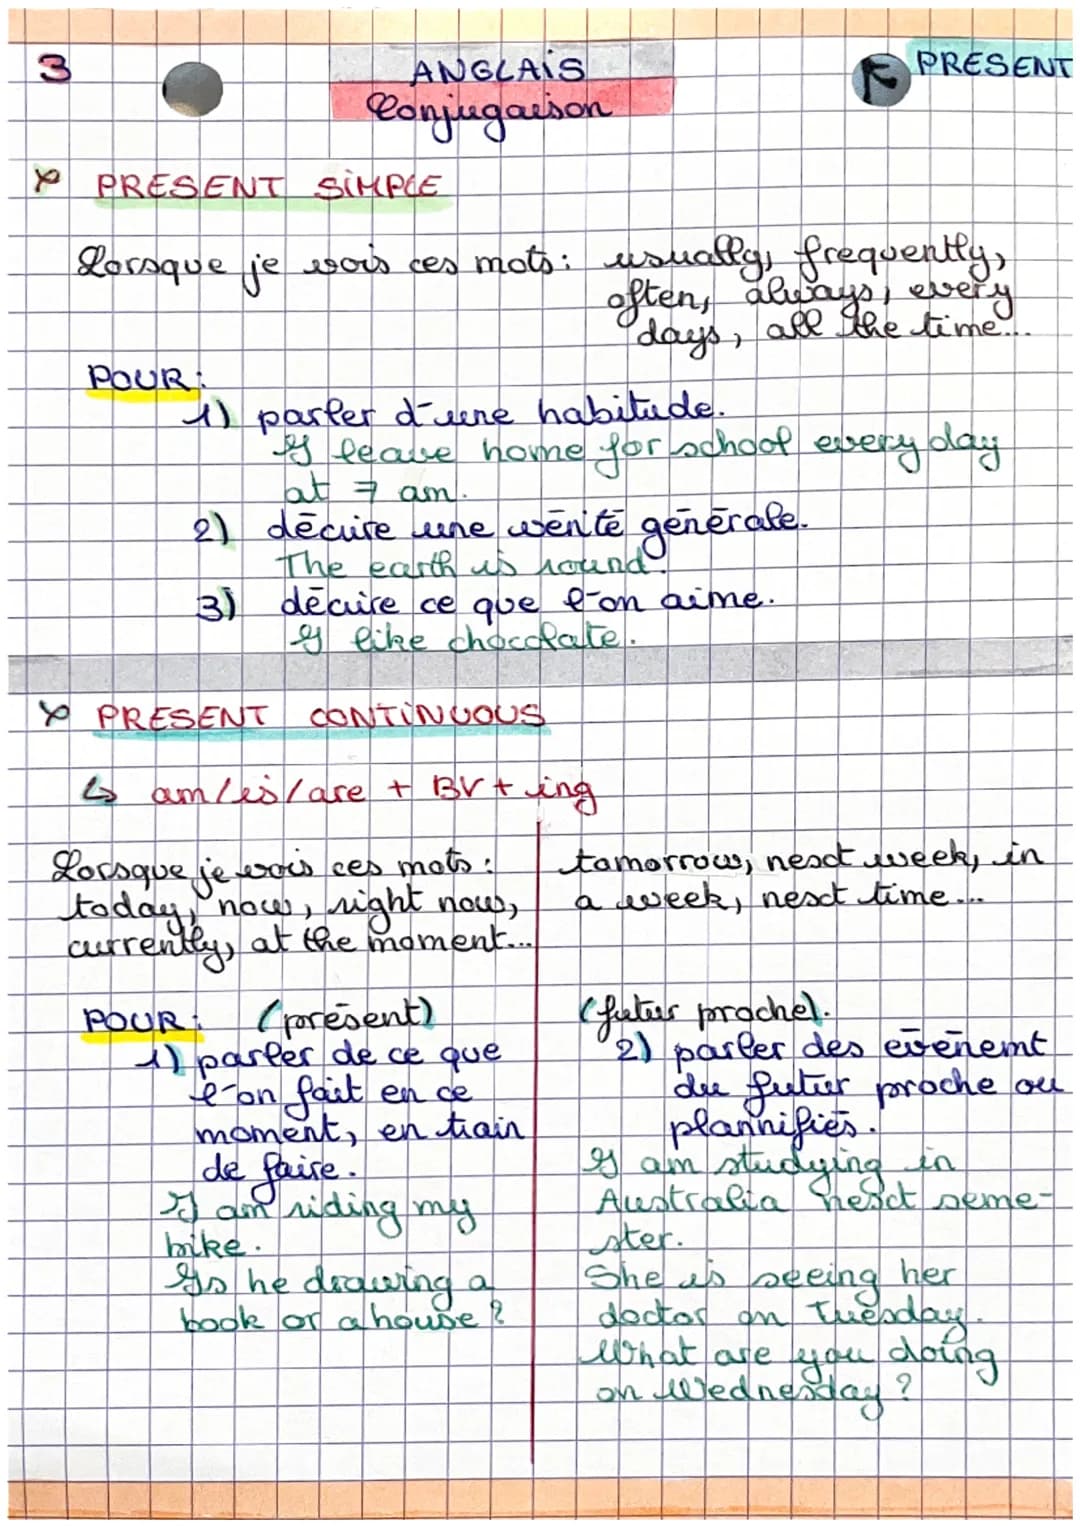 3
ANGLAIS
PRESENT
Conjugaison
PRESENT SIMPLE
Lorsque je vois ces mots: usually, frequently,
often, always, every
days, all the time...
POUR:
1) parler d'une habitude.
I leave home for school every day
at 7 am.
2) décrire une vérité générale.
The earth is round.
3) décrire ce que l'on aime.
I like chocolate.
PRESENT CONTINUOUS
↳ am/is/are + BV + ing
Lorsque je vois ces mots:
today, now, right now,
currently, at the moment...
POUR: (présent)
1) parler de ce que
l'on fait en ce
moment, en train
de faire.
I am riding my
bike.
Is he drawing a
book or a house?
tomorrow, next week, in
a week, next time...
(futur proche).
2) parler des événemt
du futur proche ou
plannifiés.
I am studying in
Australia next seme-
ster.
She is seeing her
doctor on Tuesday.
What are you doing
on Wednesday?